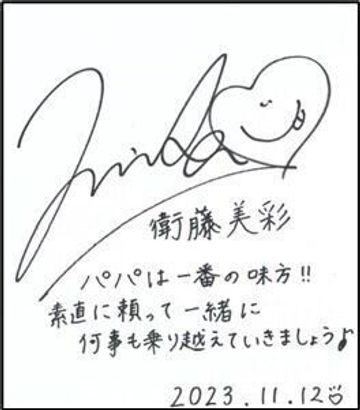 衛藤美彩
パパは一番の味方!!
素直に頼って一緒に
何事も乗り越えていきましょう♪
2023.11.12